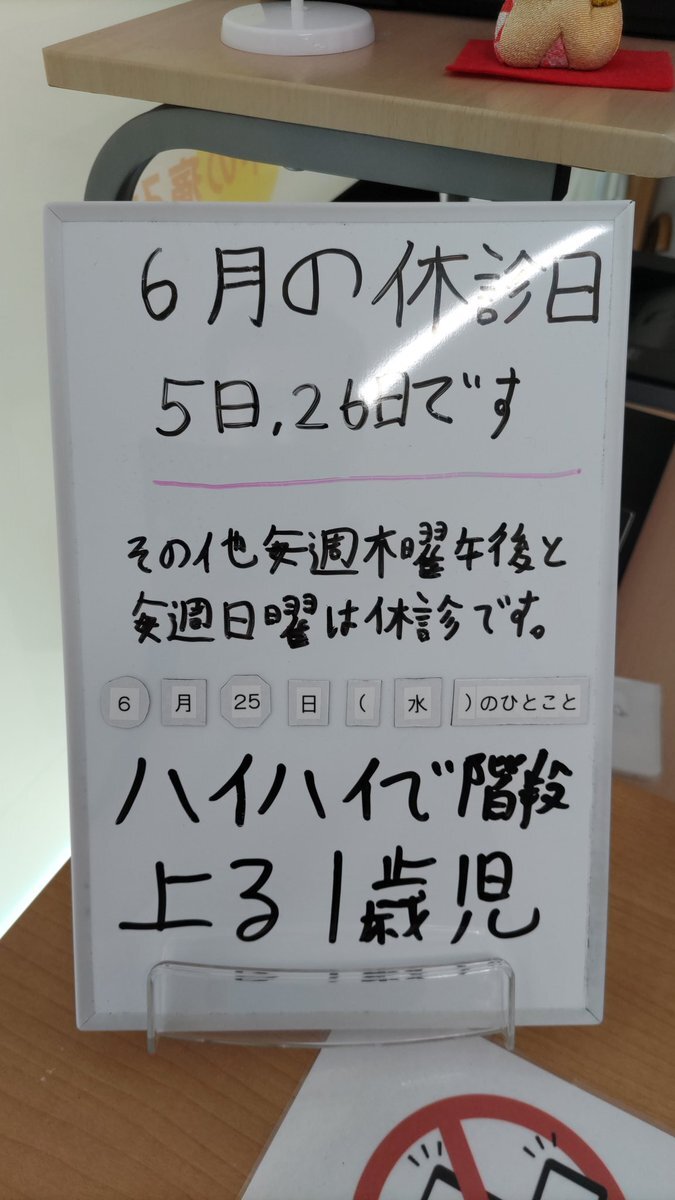 6月の休診日
5日,26日です
その他毎週木曜午後と
毎週日曜は休診です。
6月25日(水)のひとこと
ハイハイで階段
上る1歳児